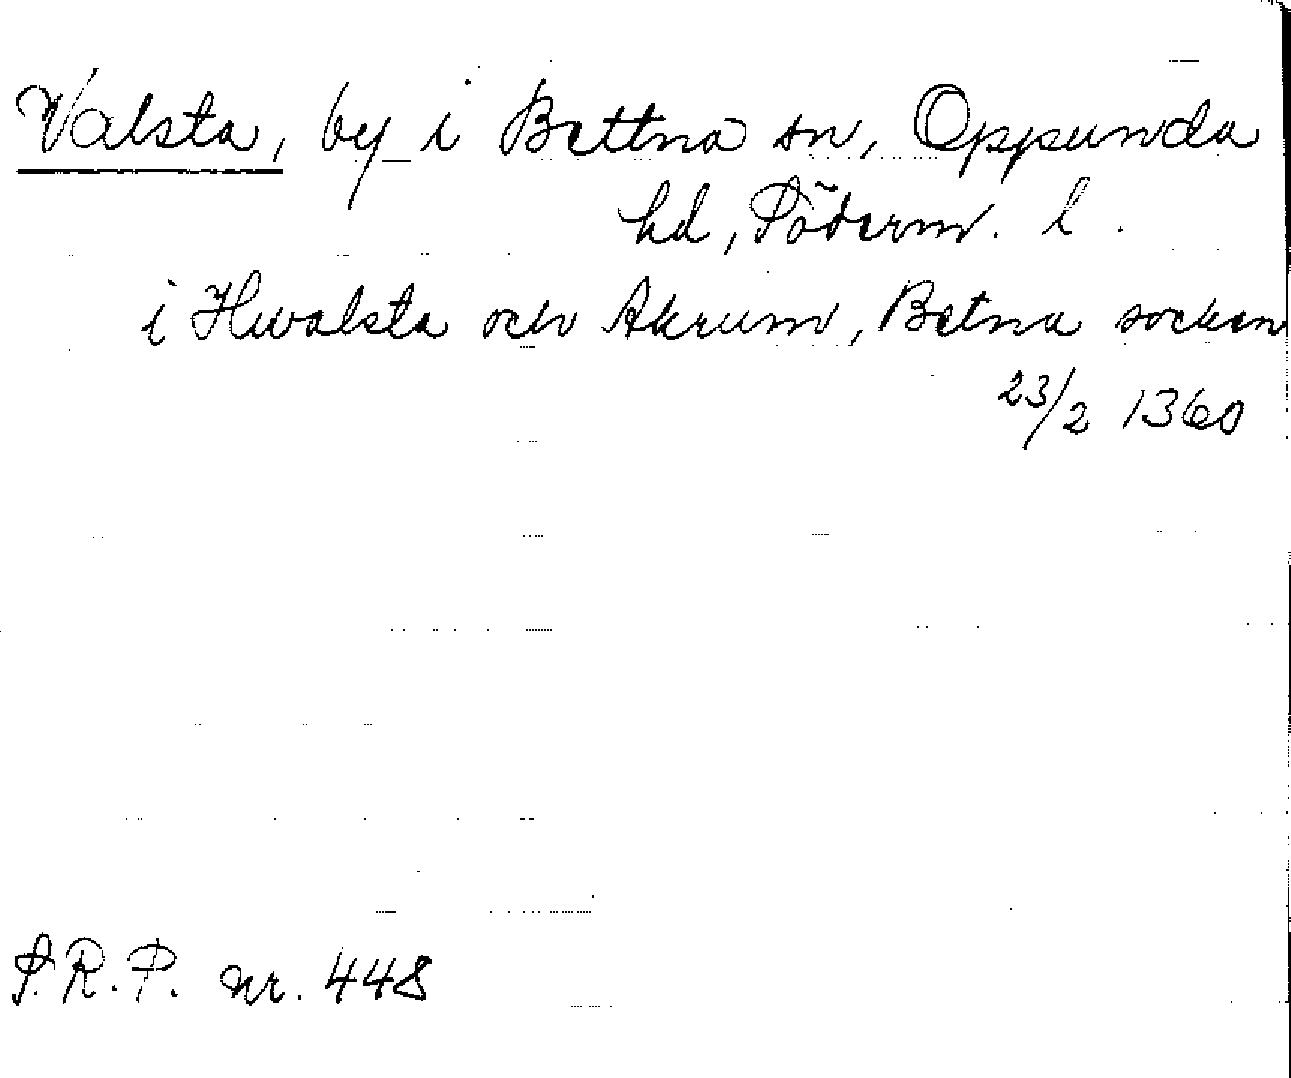 Valsta, by i Bettna sn, Oppunda
hd, Söderm. l.
i Hwalsta och Akrum, Betna socken
23/2 1360
S.R.P. nr. 448